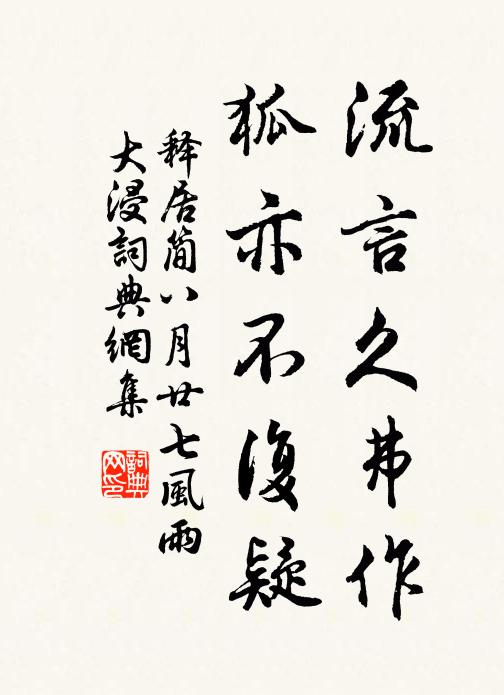 流言久弗作
狐亦不復疑
释居簡八月廿七風雨
大浸詞典網集
詞典
网印